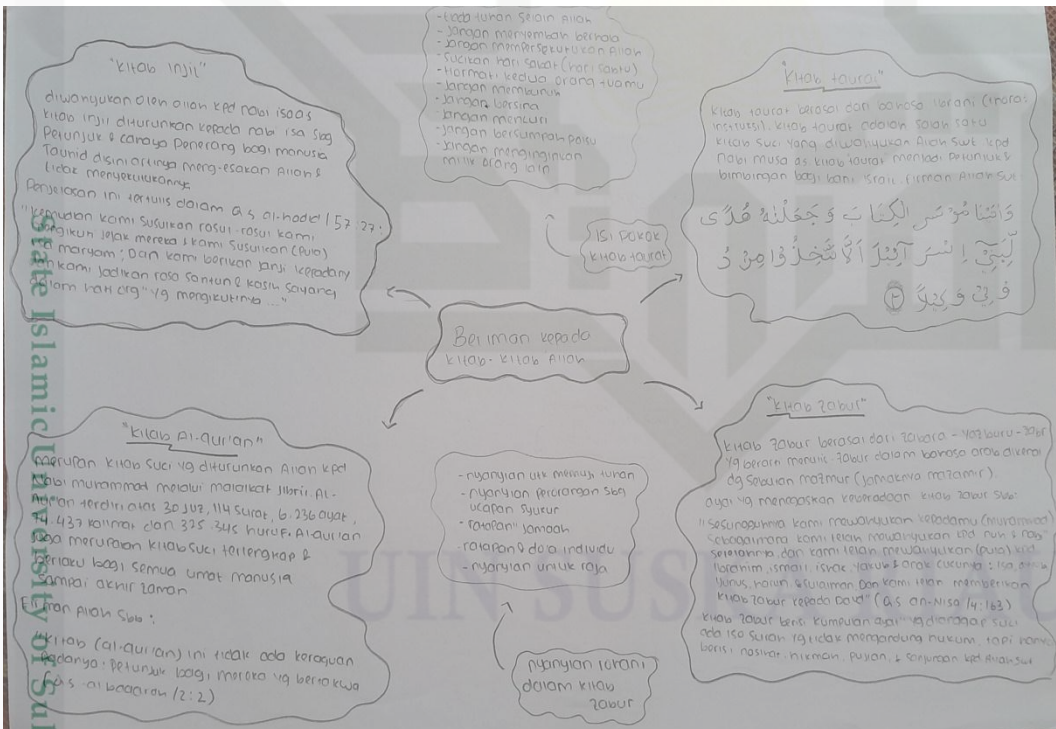 "Kitab Injil"
diwahyukan oleh allah kpd nabi isa as
kitab injil diturunkan kepada nabi isa sbg
Petunjuk & cahaya Penerang bagi manusia
Tauhid disini artinya meng-esakan Allah &
tidak menyekutukannya
Penjelasan ini tertulis dalam Q.s al-hadid / 57:27:
"kemudian kami susulkan rosul-rosul kami
mengikuti jejak mereka & kami susulkan (pula)
maryam; Dan kami berikan injil kepadany
kami jadikan rasa santun & kasih sayang
dalam hati org" yg mengikutinya ..."
- tiada tuhan selain Allah
- Jangan menyembah berhala
- Jangan mempersekutukan Allah
- Sucikan hari sabat (hari sabtu)
- Hormati kedua orang tuamu
- Jangan membunuh
- Jangan berzina
- Jangan mencuri
- Jangan bersumpah palsu
- Jangan menginginkan
milik orang lain
Isi pokok
kitab taurat
"Kitab taurat"
kitab taurat berasal dari bahasa ibrani (thora:
instruksi). kitab taurat adalah salah satu
kitab suci yang diwahyukan Allah swt kpd
nabi musa as. kitab taurat menjadi petunjuk &
bimbingan bagi bani israil. firman Allah swt
وَاٰتَيْنَا مُوْسَى الْكِتَابَ وَجَعَلْنٰهُ هُدًى
لِّبَنِيْٓ اِسْرَآئِيْلَ اَلَّا تَتَّخِذُوْا مِنْ دُ
وْنِيْ وَكِيْلًا ٢
Beriman kepada
kitab-kitab Allah
"Kitab Al-qur'an"
merupan kitab suci yg diturunkan Allah kpd
nabi muhammad melalui malaikat jibril. Al-
qur'an terdiri atas 30 juz, 114 surat, 6.236 ayat,
74.437 kalimat dan 325.345 huruf. Al-qur'an
juga merupakan kitab suci terlengkap &
berlaku bagi semua umat manusia
sampai akhir zaman
Firman Allah sbb:
kitab (al-qur'an) ini tidak ada keraguan
padanya: Petunjuk bagi mereka yg bertakwa
Q.s al baqarah (2:2)
- nyanyian utk memuji tuhan
- nyanyian perorangan sbg
ucapan syukur
- ratapan" jamaah
- ratapan & doa individu
- nyanyian untuk raja
nyanyian ibrani
dalam kitab
zabur
"Kitab zabur"
kitab zabur berasal dari zabara-yazburu-zabr
yg berarti menulis. zabur dalam bahasa arab dikenal
dg sebutan mazmur (jamaknya mazamir).
ayat yg menegaskan keberadaan kitab zabur sbb:
"Sesungguhnya kami mewahyukan kepadamu (muhammad)
sebagaimana kami telah mewahyukan kpd nuh & nabi"
setelahnya, dan kami telah mewahyukan (pula) kpd
ibrahim, ismail, ishak, yakub & anak cucunya: isa, ayyub
yunus, harun & sulaiman. Dan kami telah memberikan
kitab zabur kepada Daud" (Q.s an-Nisa /4:163)
kitab zabur berisi kumpulan ayat" yg dianggap suci
ada 150 surah yg tidak mengandung hukum, tapi hanya
berisi nasihat, hikmah, pujian, & sanjungan kpd Allah swt
State Islamic University of Sul
UIN SUSKA RIAU